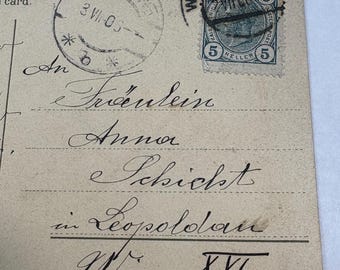 card.
3 VII 0
* a *
5 HELLER 5
An
Fräulein
Anna
Schickt
in Leopoldau
XXI.